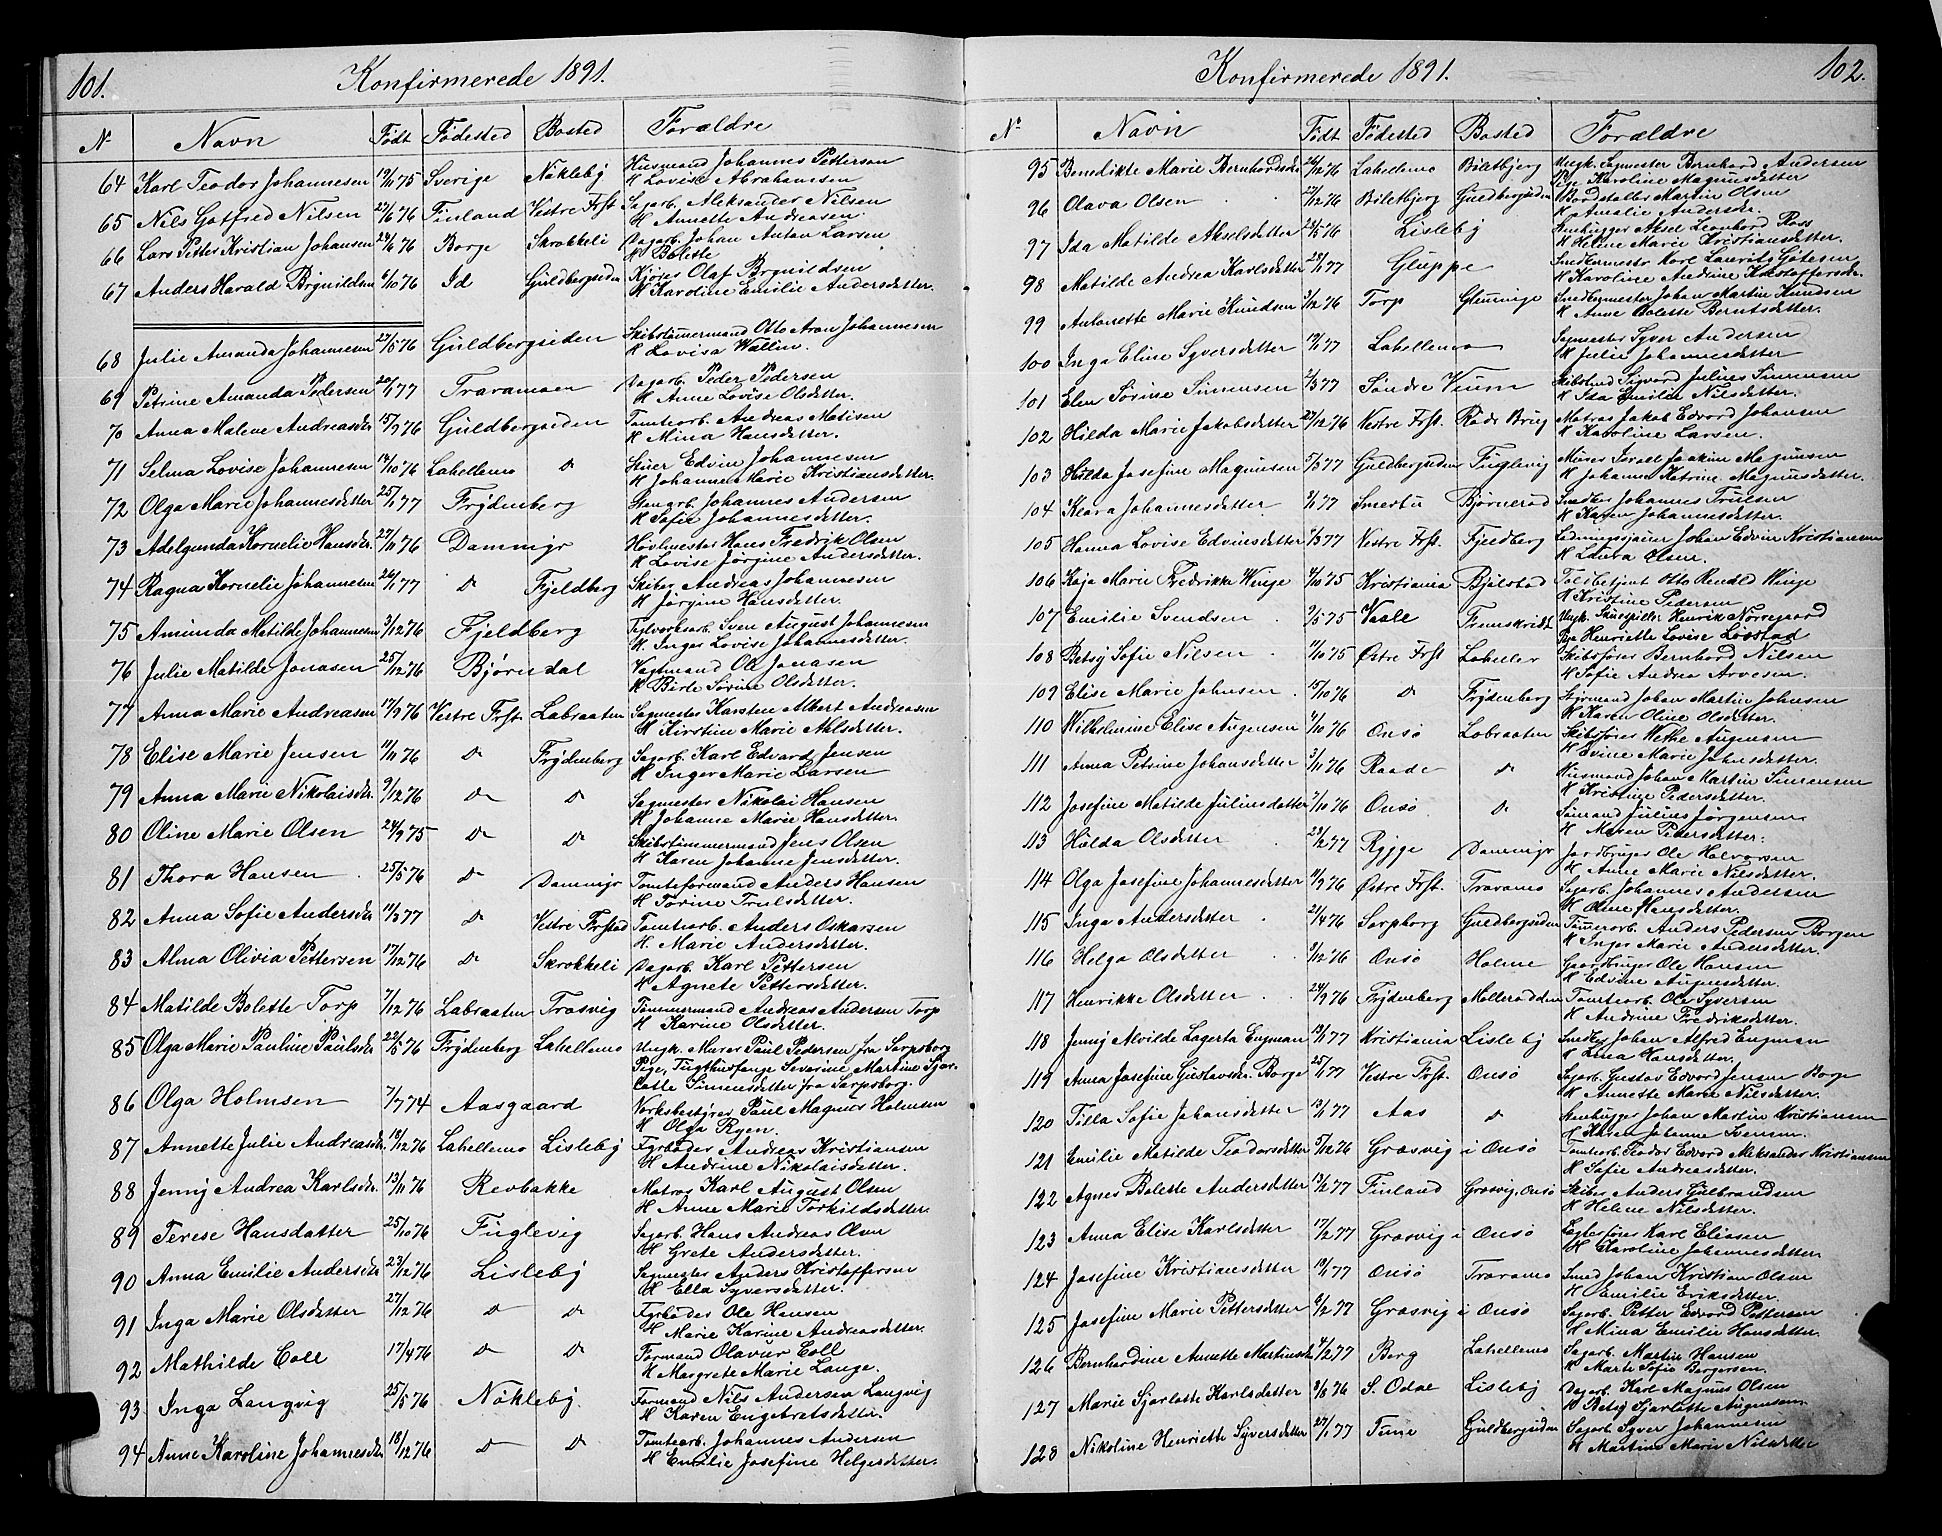 101.
Konfirmerede 1891.
Nr Navn Födt Födested Bosted Forældre
64 Karl Teodor Johannesen 19/11 75 Sverige Nökleby Husmand Johannes Petterson
H Lovise Abrahamsen
65 Nils Gotfred Nilsen 23/6 76 Finland Vestre Frst Sagarb. Aleksander Nilsen
H Annette Andreasen.
66 Lars Petter Kristian Johansen 29/6 76 Borge Skrokkeli Dagarb. Johan Anton Larsen
H Bolette
67 Anders Harald Brynildsen 6/10 76 Id Guldbergsiden Kjörer Olaf Brynildsen
H Karoline Emilie Andersdatter.
68 Julie Amanda Johannesen 27/5 76 Guldbergsiden Skibstömmermand Otto Aron Johannesen
H Lovisa Wallin.
69 Petrine Amanda Pedersen 20/1 77 Traramoen Dagarb. Peder Pedersen
H Anne Lovise Olsdetter.
70 Anna Malene Andreasdr 15/9 76 Guldbergsiden Tomtearb. Andreas Matisen
H Mina Hansdetter.
71 Selma Lovise Johannesen 14/10 76 Lahellemo do Skier Edvin Johannesen
H Johanne Marie Kristiansdetter.
72 Olga Marie Johannesdetter 25/1 77 Frydenberg Stenarb. Johannes Andersen
H Sofie Johannesdetter.
73 Adelgunda Kornelie Hansdr. 27/10 76 Dammyr Hövlmester Hans Fredrik Olsen
H Lovise Jörgine Andersdetter.
74 Ragna Kornelie Johannesen 26/1 77 do Fjeldberg Skiber Andreas Johannesen
H Jörgine Hansdetter.
75 Aminda Matilde Johannesen 3/12 76 Fjeldberg Teglverksarb. Sven August Johannesen
H. Inger Lovise Johannesdetter.
76 Julie Matilde Jonasen 25/12 76 Björndal Vegtmand Ole Jonasen
H Birte Sörine Olsdetter.
77 Anna Marie Andreasen 17/9 76 Vestre Frst Labraaten Sagmester Karsten Albert Andreasen
H Kirstine Marie Nilsdetter.
78 Elise Marie Jensen 11/11 76 do Frydenberg Sagarb. Karl Edvard Jensen
H Inger Marie Larsen
79 Anna Marie Nikolaisdr. 9/12 76 do do Sagmester Nikolai Hansen
H Johanne Marie Hansdetter.
80 Oline Marie Olsen 24/9 75 do do Skibstimmermand Jens Olsen
H Karen Johanne Jensdetter.
81 Thora Hansen 25/5 76 do Dammyr Tomteformand Anders Hansen
H Torine Trulsdetter.
82 Anna Sofie Andersdr 11/3 77 do Vestre Frstad Tomtearb. Anders Oskarsen
H. Marie Andersdetter.
83 Alma Olivia Pettersen 17/12 76 do Skrokkeli Dagarb. Karl Pettersen
H Agnete Pettersdetter.
84 Matilde Bolette Torp 7/12 76 Labraaten Trosvig Tömmermand Andreas Andersen Torp
H Karine Olsdetter.
85 Olga Marie Pauline Paulsdr 22/5 76 Frydenberg Lahellemo Ungk. Murer Paul Pedersen fra Sarpsborg
Pige, Tugthusfange Severine Martine Sjar-
lotte Simensdetter fra Sarpsborg.
86 Olga Holmsen 7/7 74 Aasgaard Verksbestyrer Paul Magnus Holmsen
H Olga Ryen.
87 Annette Julie Andreasdr. 18/12 76 Lahellemo Lisleby Fyrböder Andreas Kristiansen
H Andrine Nikolaisdetter.
88 Jenny Andrea Karlsdr. 13/11 76 Revbakke Matros Karl August Olsen
H Anne Marie Torkildsdetter.
89 Terese Hansdatter 25/10 76 Fuglevig Sagarb. Hans Andreas Olsen
H Grete Andersdetter.
90 Anna Emilie Andersdr 23/12 76 Lisleby Sagmester Anders Kristoffersen
H Ella Syversdetter.
91 Inga Marie Olsdetter 27/12 76 do do Fyrböder Ole Hansen
H Marie Karine Andreasdetter.
92 Mathilde Coll 17/4 76 do do Formand Olavur Coll
H Margrete Marie Lange.
93 Inga Langvig 25/5 76 Nökleby. Formand Nils Andersen Langvig
H Karen Engebretsdetter.
94 Anne Karoline Johannesdr 18/12 76 do do Tomtearb. Johannes Andersen
H Emilie Josefine Helgesdetter.
Konfirmerede 1891.
102.
Nr. Navn Födt Födested Bosted Forældre
95 Benedikte Marie Bernhardsdr 26/12 76 Lahellemo Biletbjerg Ungk. Sagmester Bernhard Andersen
Pige Karoline Magnusdetter
96 Olava Olsen 22/12 76 Biletbjerg Guldbergsiden Bordstabler Martin Olsen
H Amalie Andersdr.
97 Ida Matilde Akselsdetter 24/5 76 Lisleby Stenhugger Aksel Leonhard Ross
H Helene Marie Kristiansdetter.
98 Matilde Andrea Karlsdetter 29/1 77 Gluppe Snedkermestr Karl Laurits Götesen
H Karoline Andrine Kristoffersdr.
99 Antonette Marie Knudsen 3/12 76 Torp Glemminge Snedkermester Johan Martin Knudsen
H Anne Bolette Berntsdetter.
100 Inga Eline Syversdetter 19/1 77 Lahellemo Sagmester Syver Andersen
H Julie Johannesdetter
101 Elen Sörine Simensen 2/3 77 Söndre Veum Skibstmd Sigvard Julius Simensen
H Ida Emilie Nilsdetter.
102 Hilda Marie Jakobsdetter 27/12 76 Vestre Frst. Röde Brug Matros Jakob Edvard Johansen
H Karoline Larsen.
103 Hilda Josefine Magnusen 5/3 77 Guldbergsiden Fuglevig Murer Joakim Magnusen
H Johanne Katrine Magnusdetter.
104 Klara Johannesdetter 3/1 77 Smertu Björnerod Snedker Johannes Trulsen
H Karen Johannesdetter.
105 Hanna Lovise Edvinsdetter 6/3 77 Vestre Frst. Fjeldberg Johan Edvin Kristiansen
H Laura Olsen.
106 Kaja Marie Fredrikke Winge 4/10 75 Kristiania Bjölstad Toldbetjent Otto Rendel Winge
H Kristine Pedersen
107 Emilie Svendsen 9/5 75 Vaale Fremskridt Ungk. Skuespiller Henrik Nörregaard
Pige Henriette Lovise Löostad
108 Betsy Sofie Nilsen 11/10 75 Östre Frst Lahellen Skibsförer Bernhard Nilsen
H Sofie Andrea Arvesen.
109 Elise Marie Johnsen 15/10 76 do Frydenberg Styrmand Johan Martin Johnsen
H Karen Oline Olsdetter.
110 Wilhelmine Elise Augensen 4/10 76 Onsö Labraaten Skibsförer Methe Augensen
H Evine Marie Johnsdetter.
111 Anna Petrine Johansdetter 3/11 76 Raade do Husmand Johan Martin Simensen
H Kristine Pedersdetter.
112 Josefine Matilde Juliusdatter 7/10 76 Onsö do Sömand Julius Jörgensen
H Maren Pedersdetter.
113 Hilda Olsdetter 23/2 77 Rygge Dammyr Jordbruger Ole Halvorsen
H Anne Marie Nilsdetter.
114 Olga Josefine Johannesdetter 11/9 76 Östre Frst. Traramo Sagarb. Johannes Andersen
H Oline Hansdetter.
115 Inga Andersdetter 21/4 76 Sarpborg Guldbergsiden Tömmerarb. Anders Pedersen Borgen
H Inger Marie Andersdetter.
116 Helga Olsdetter 9/12 76 Onsö Holme Gaardbruger Ole Hansen
H Edvine Augensdetter.
117 Henrikke Olsdetter 24/9 76 Frydenberg Mellerödden Tomtearb. Ole Syversen
H Andrine Fredriksdetter.
118 Jenny Alvilde Lagerta Engman 13/1 77 Kristiania Lisleby Snedker Johan Alfred Engman
H Lina Hansdetter.
119 Anna Josefine Gustavsdr. Borge 25/1 77 Vestre Frst. Onsö Sagarb. Gustav Edvard Jensen Borge
H Annette Marie Nilsdetter.
120 Tilla Sofie Johansdetter 13/1 77 Aas do Stenhugger Johan Martin Kristiansen
H Karen Johanne Iversen.
121 Emilie Matilde Teodorsdetter 5/12 76 Græsvig i Onsö Tomtearb. Teodor Edvard Aleksander Kristiansen
H Sofie Andreasdetter.
122 Agnes Bolette Andersdetter 13/2 77 Finland Græsvig, Onsö Skiber Anders Gulbrandsen
H Helene Nilsdetter.
123 Anna Elise Karlsdetter 17/2 77 Græsvig i Onsö Lægterförer Karl Eliasen
H Karoline Johannesdetter.
124 Josefine Kristiansdetter 19/1 77 Onsö Traramo Smed Johan Kristian Olsen
H Emilie Eriksdetter.
125 Josefine Marie Pettersdetter 6/2 77 Græsvig i Onsö Sagarb. Petter Edvard Pettersen
H Mina Emilie Hansdetter.
126 Bernhardine Annette Martinsdr 4/2 77 Berg Lahellemo Sagarb. Martin Hansen
H Marte Sofie Bergersen.
127 Marie Sjarlotte Karlsdetter 8/8 76 S. Odal Lisleby Dagarb. Karl Magnus Olsen
H Betsy Sjarlotte Augensen.
128 Nikoline Henriette Syversdetter 27/1 77 Tune Guldbergsiden Sagarb. Syver Johannesen
H Martine Marie Nilsdetter